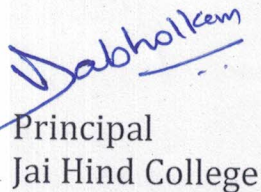 Dabholkar
Principal
Jai Hind College